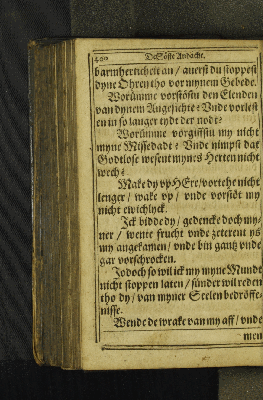 400 De Söste Andacht.
barmherticheit an / auerst du stoppest
dyne Ohren tho vor mynem Gebede.
Worümme vorstöstu den Elenden
van dynem Angesichte? Vnde vorlest
en in so langer tydt der nodt?
Worümme vorgiffstu my nicht
myne Missedadt? Vnde nimpst dat
Godtlose wesent mynes Herten nicht
wech?
Make dy vp HEre / vortehe nicht
lenger / wake vp / vnde vorstöt my
nicht ewichlyck.
Ick bidde dy / gedencke doch my-
ner / wente frucht vnde zeterent ys
my angekamen / vnde bin gantz vnde
gar vorschrocken.
Jodoch so wil ick my myne Mundt
nicht stoppen laten / sünder wil reden
tho dy / van myner Seelen bedröffe-
nisse.
Wende de wrake van my aff / vnde
men